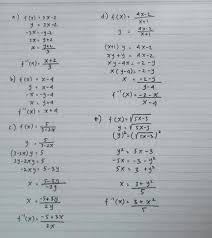 a) f(x) = 3x-2
y = 3x-2
-3x = -y-2
3x = y+2
x = y+2/3
f⁻¹(x) = x+2/3
b) f(x) = x-4
y = x-4
-x = -y-4
x = y+4
f⁻¹(x) = x+4
c) f(x) = 5/3-2x
y = 5/3-2x
(3-2x)y = 5
3y-2xy = 5
-2xy = 5-3y
x = 5-3y/-2y
x = -5+3y/2y
f⁻¹(x) = -5+3x/2x
d) f(x) = 4x-2/x+1
y = 4x-2/x+1
(x+1)y = 4x-2
xy+y = 4x-2
xy-4x = -2-y
x(y-4) = -2-y
x = -2-y/y-4
f⁻¹(x) = -2-x/x-4
e) f(x) = √5x-3
(y)² = (√5x-3)²
y² = 5x-3
-5x = -3-y²
5x = 3+y²
x = 3+y²/5
f⁻¹(x) = 3+x²/5